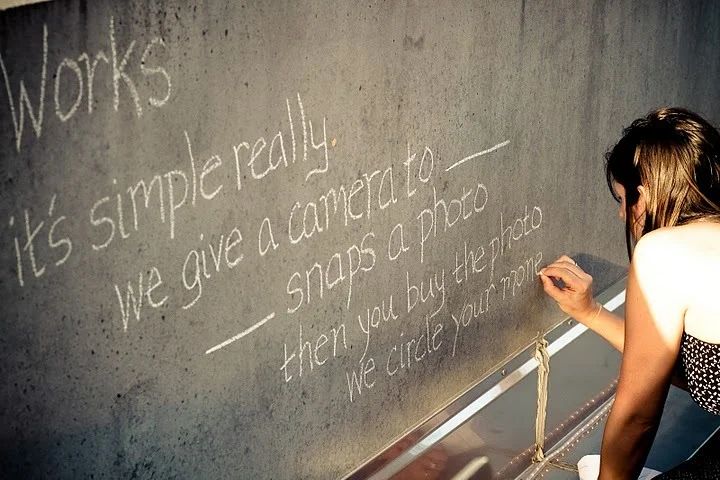 Works
it's simple really
we give a camera to __
__ snaps a photo
then you buy the photo
we circle your mone